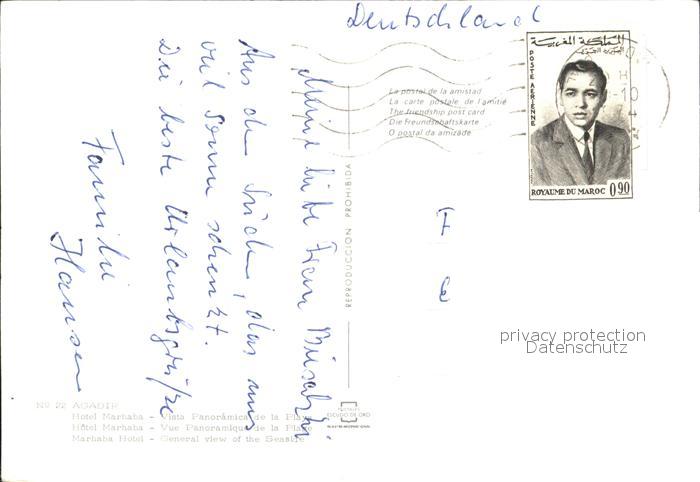 Deutschland
Meine liebe Frau
Aus dem Süden, das uns
viel Sonne schenkt.
Die beste Urlaubsgrüße
Familie
Hansen
La postal de la amistad
La carte postale de l'amitié
The friendship post card
Die Freundschaftskarte
O postal da amizade
المملكة المغربية
POSTE AERIENNE
ROYAUME DU MAROC 0,90
REPRODUCCION PROHIBIDA
F
e
privacy protection
Datenschutz
Nº 22 AGADIR
Hotel Marhaba - Vista Panorâmica de la Playa
Hôtel Marhaba - Vue Panoramique de la Plage
Marhaba Hotel - General view of the Seaside
POSTALES
ESCUDO DE ORO